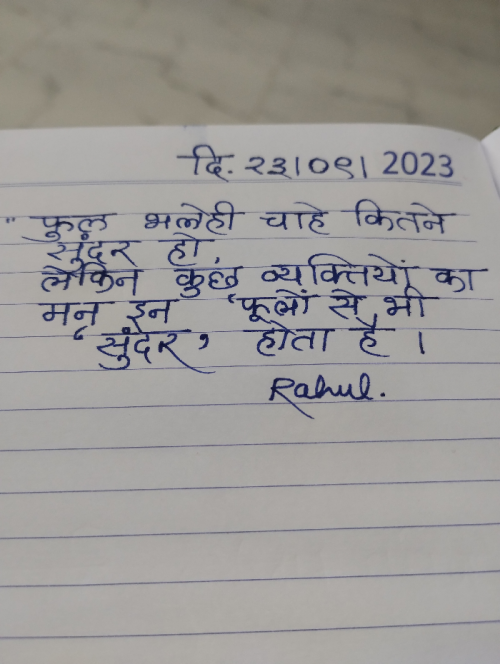 दि. २३।०९। 2023
" फुल भलेही चाहे कितने
सुंदर हो,
लेकिन कुछ व्यक्तियों का
मन इन फूलों से भी
' सुंदर ' होता है ।
Rahul.